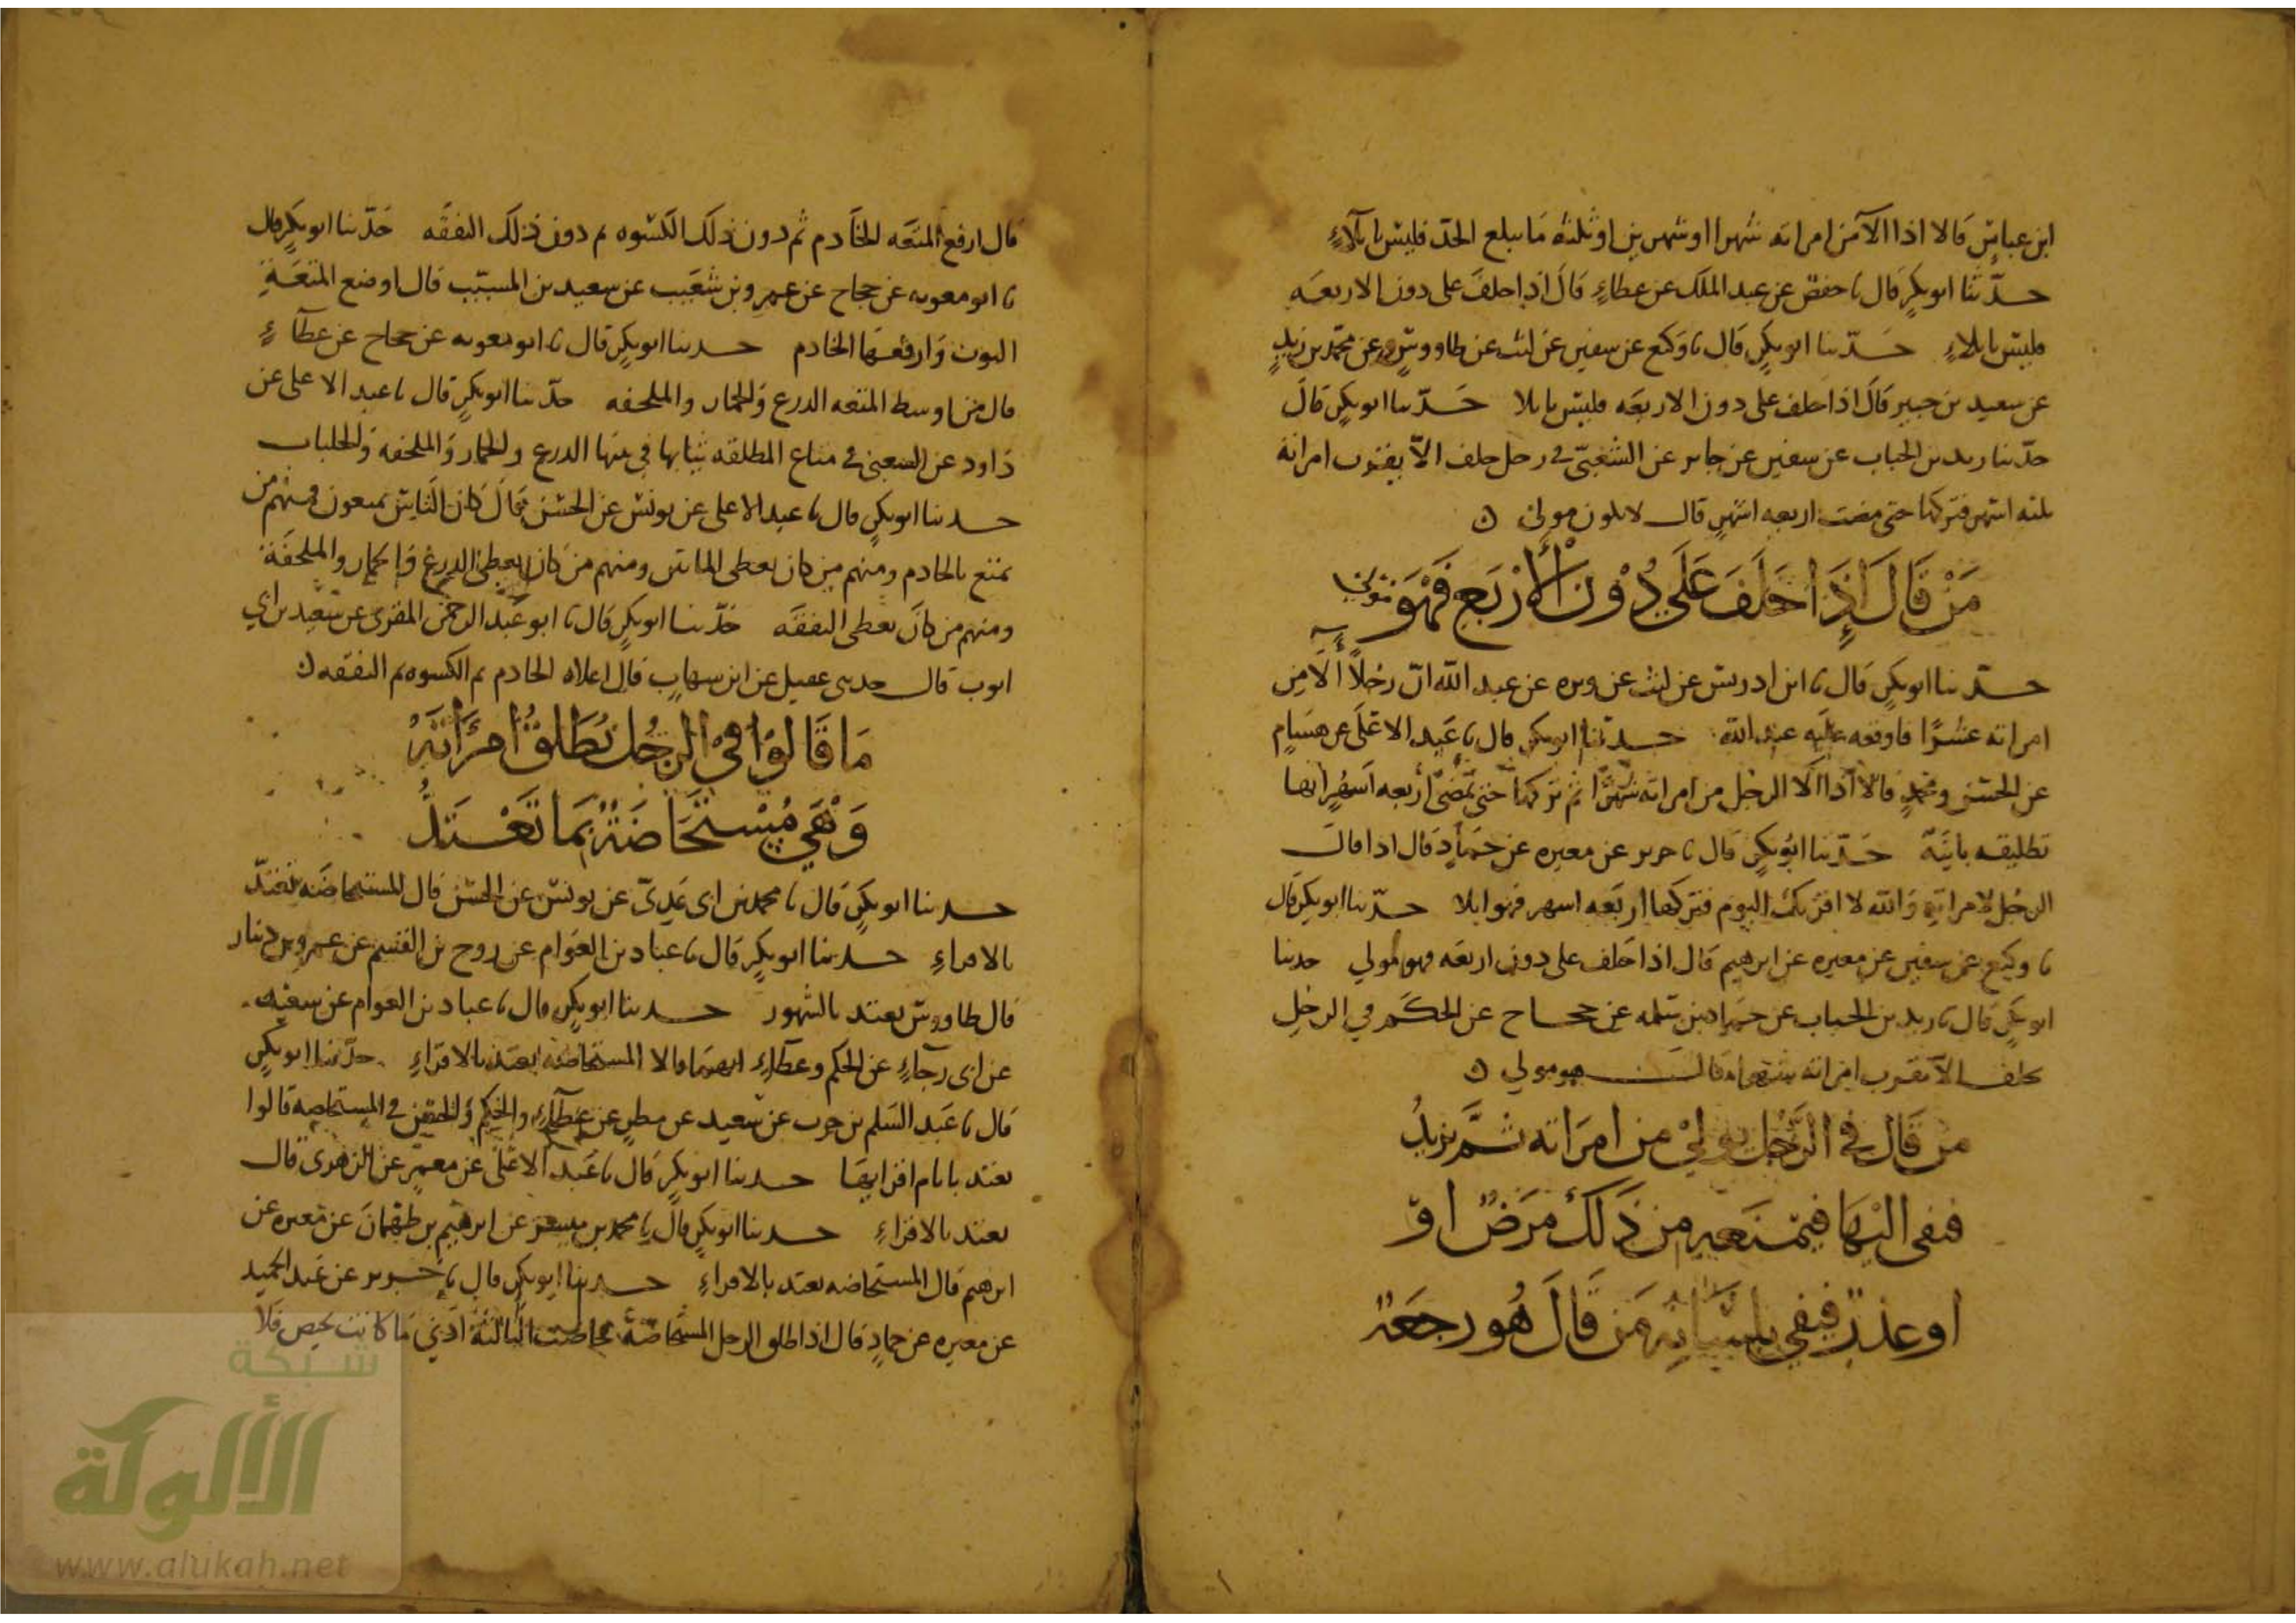 ابن عباس قالا اذا الا من امراته شهرا او شهرين او ثلثه ما يبلع الحد فليس بايلاء
حدثنا ابو بكر قال نا حفص عن عبد الملك عن عطاء قال اذا حلف على دون الاربعه
فليس بايلاء حدثنا ابو بكر قال نا وكيع عن سفين عن ليث عن طاووس وعن محمد بن زيد
عن سعيد بن جبير قال اذا حلف على دون الاربعه فليس بايلا حدثنا ابو بكر قال
حدثنا زيد بن الحباب عن سفين عن جابر عن الشعبي في رجل حلف الا يقرب امراته
ثلثه اشهر فتركها حتى مضت اربعه اشهر قال لا يكون مولي
من قال اذا حلف على دون الاربع فهو مولي
حدثنا ابو بكر قال نا ابن ادريس عن ليث عن وبره عن عبد الله ان رجلا الا من
امراته عشرا فاوقعه عليه عبد الله حدثنا ابو بكر قال نا عبد الاعلى عن هشام
عن الحسن ومحمد قالا اذا الا الرجل من امراته شهرا ثم تركها حتى تمضي اربعه اشهر انها
تطليقه باينه حدثنا ابو بكر قال نا جرير عن مغيره عن حماد قال اذا قال
الرجل لامراته والله لا اقربك اليوم فتركها اربعه اشهر فهو ايلا حدثنا ابو بكر قال
نا وكيع عن سفين عن مغيره عن ابرهيم قال اذا حلف على دون اربعه فهو مولي حدثنا
ابو بكر قال نا زيد بن الحباب عن حماد بن سلمه عن حجاج عن الحكم في الرجل
يحلف الا يقرب امراته شهرا قال هو مولي
من قال في الرجل يولي من امراته ثم يريد
ففى اليها فيمنعه من ذلك مرض او
او عذر فيفي بلسانه من قال هو رجعة
قال ارفع المتعه الخادم ثم دون ذلك الكسوه ثم دون ذلك النفقه حدثنا ابو بكر قال
نا ابو معويه عن حجاج عن عمرو بن شعيب عن سعيد بن المسيب قال اوضع المتعة
الثوب وارفعها الخادم حدثنا ابو بكر قال نا ابو معويه عن حجاج عن عطاء
قال من اوسط المتعه الدرع والخمار والملحفه حدثنا ابو بكر قال نا عبد الاعلى عن
داود عن الشعبي في متاع المطلقه ثيابها في بيتها الدرع والخمار والملحفه والجلباب
حدثنا ابو بكر قال نا عبد الاعلى عن يونس عن الحسن قال كان الناس يمتعون فمنهم من
يمتع بالخادم ومنهم من كان يعطى الماتين ومنهم من كان يعطى الدرع والخمار والملحفة
ومنهم من كان يعطى النفقه حدثنا ابو بكر قال نا ابو عبد الرحمن المقرى عن سعيد بن ابي
ايوب قال حدثني عقيل عن ابن شهاب قال اعلاه الخادم ثم الكسوه ثم النفقه
ما قالوا في الرجل يطلق امرأته
وهي مستحاضة بما تعتد
حدثنا ابو بكر قال نا محمد بن ابي عدي عن يونس عن الحسن قال المستحاضه تعتد
بالاقراء حدثنا ابو بكر قال نا عباد بن العوام عن روح بن القسم عن عمرو بن دينار
قال طاووس تعتد بالشهور حدثنا ابو بكر قال نا عباد بن العوام عن سعيد
عن ابي رجاء عن الحكم وعطاء انهما قالا المستحاضه تعتد بالاقراء حدثنا ابو بكر
قال نا عبد السلم بن حرب عن سعيد عن مطر عن عطاء والحكم والحسن في المستحاضه قالوا
تعتد بايام اقرائها حدثنا ابو بكر قال نا عبد الاعلى عن معمر عن الزهري قال
تعتد بالاقراء حدثنا ابو بكر قال نا محمد بن عن ابرهيم بن طهمان عن مغيره عن
ابرهيم قال المستحاضه تعتد بالاقراء حدثنا ابو بكر قال نا جرير عن عبد الحميد
عن مغيره عن حماد قال اذا طلق الرجل المستحاضة فحاضت الثالثة ادنى ما كانت تحيض فلا
شبكة
الألوكة
www.alukah.net